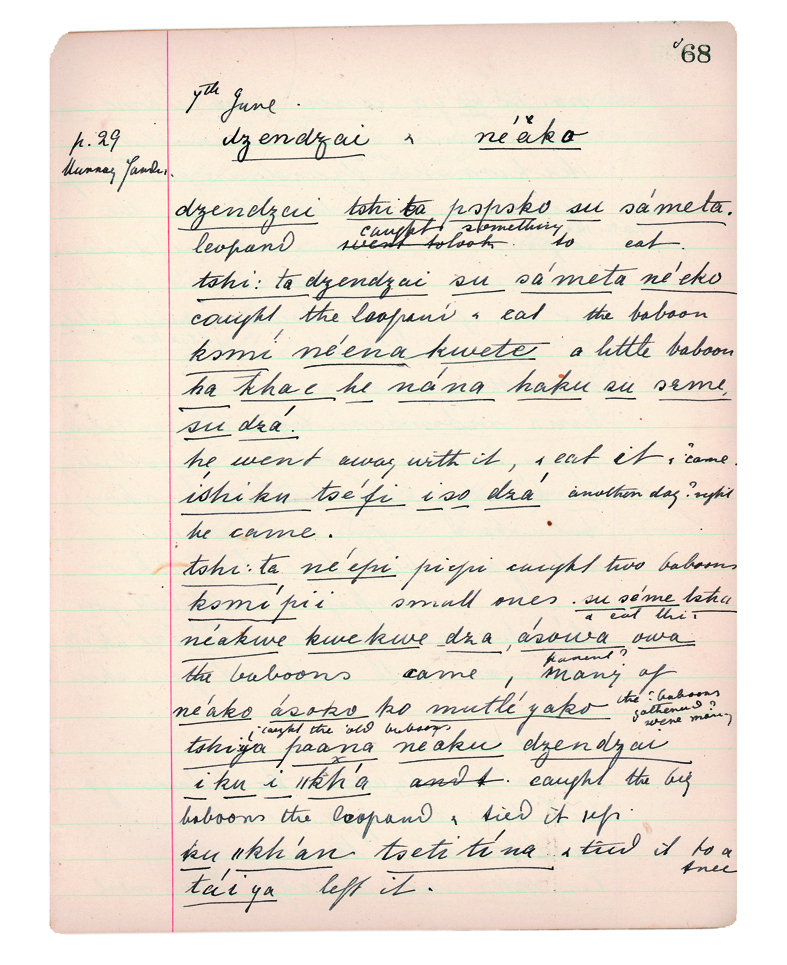 68
7th June.
p. 29
dzendzai & né'ăko
dzendzai tshi ta pspsko su sámeta.
caught something
leopard went to look to eat.
tshi: ta dzendzai su sámeta né'eko
caught the leopard & eat the baboon
ksmí né'ena kwete a little baboon
ha khac he nána haku su seme,
su dzá.
he went away with it, & eat it & ? came.
íshiku tséfi iso dzá another day ? night
he came.
tshi: ta né'epi picpi caught two baboons
ksmí pii small ones. su séme tsha
& eat this
néakwe kwekwe dza, ásowa owa
parent?
the baboons came, many of
né'ako ásoko ko mutlé yako the ? baboons
gathered?
were many
& caught the old baboons
tshiya paana neaku dzendzai
i ku i "kh'a and t. caught the big
baboons the leopard & tied it up.
ku "kh'an tseti tína & tied it to a
tree
tái ya left it.